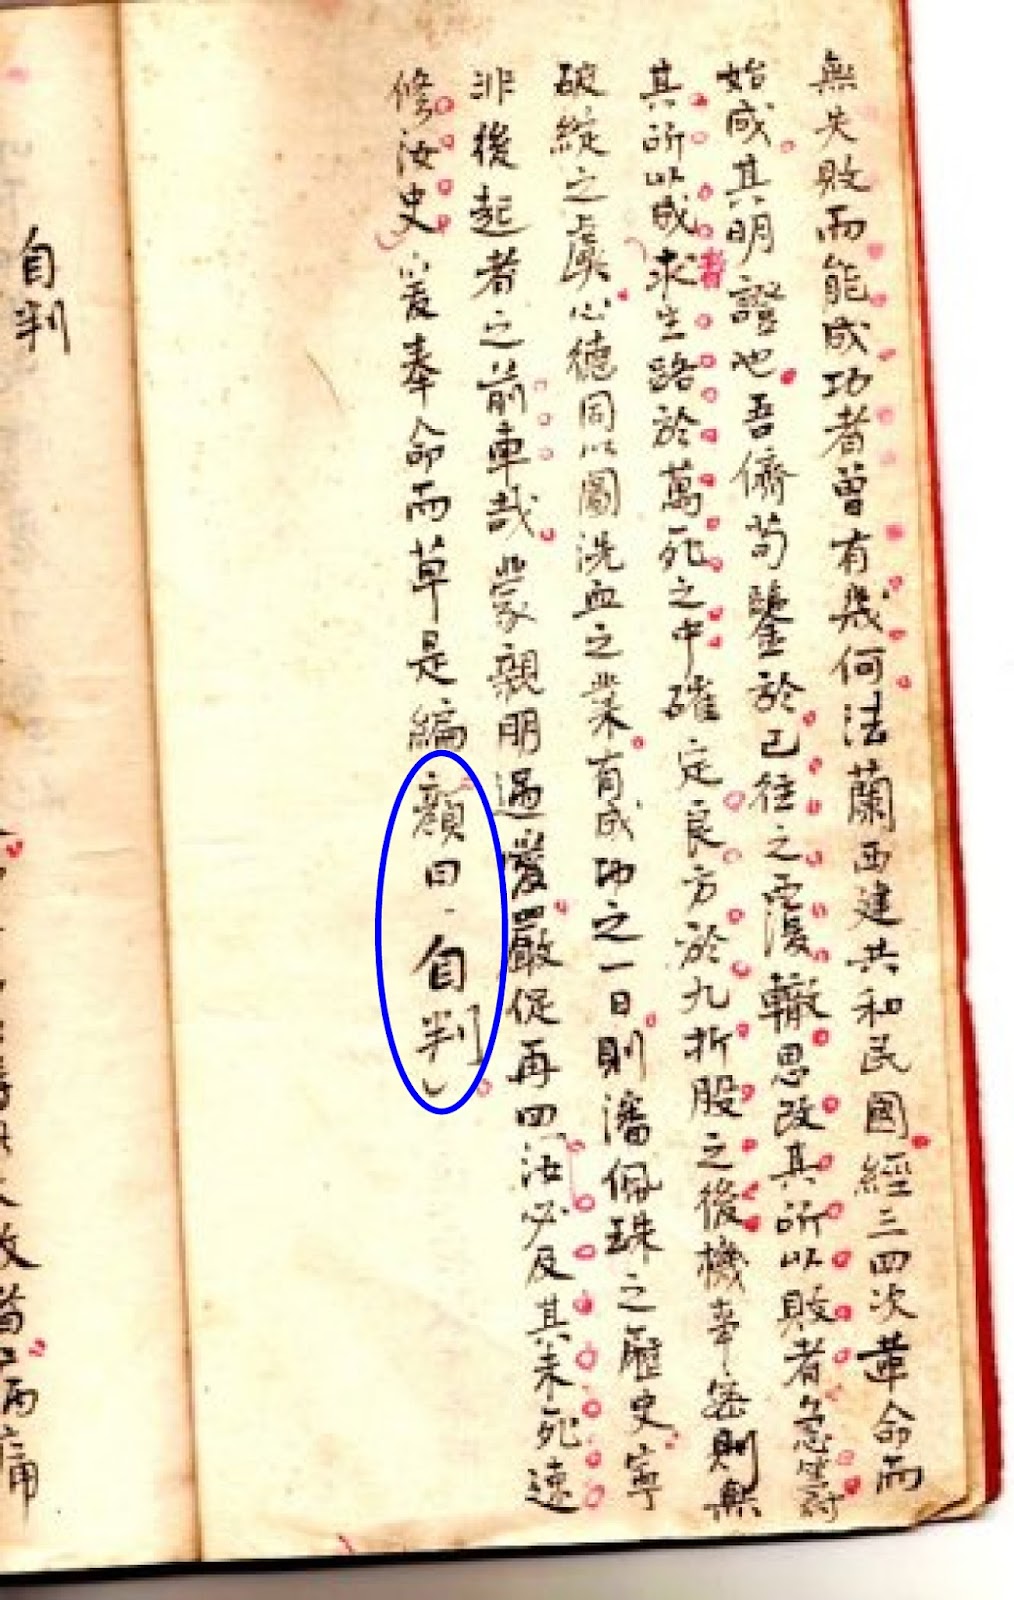 無失敗而能成功者曾有幾何法蘭西建共和民國經三四次革命而
始成其明證也吾儕苟鑒於已往之覆轍思改其所以敗者急籌
其所以成者求生路於萬死之中確定良方於九折股之後機事密則無
破綻之虞心德同以圖洗血之業有成功之一日則潘佩珠之歷史寧
非後起者之前車哉業蒙親朋過愛嚴促再四汝必及其未死速
修汝史爰奉命而草是編顏曰自判
自判